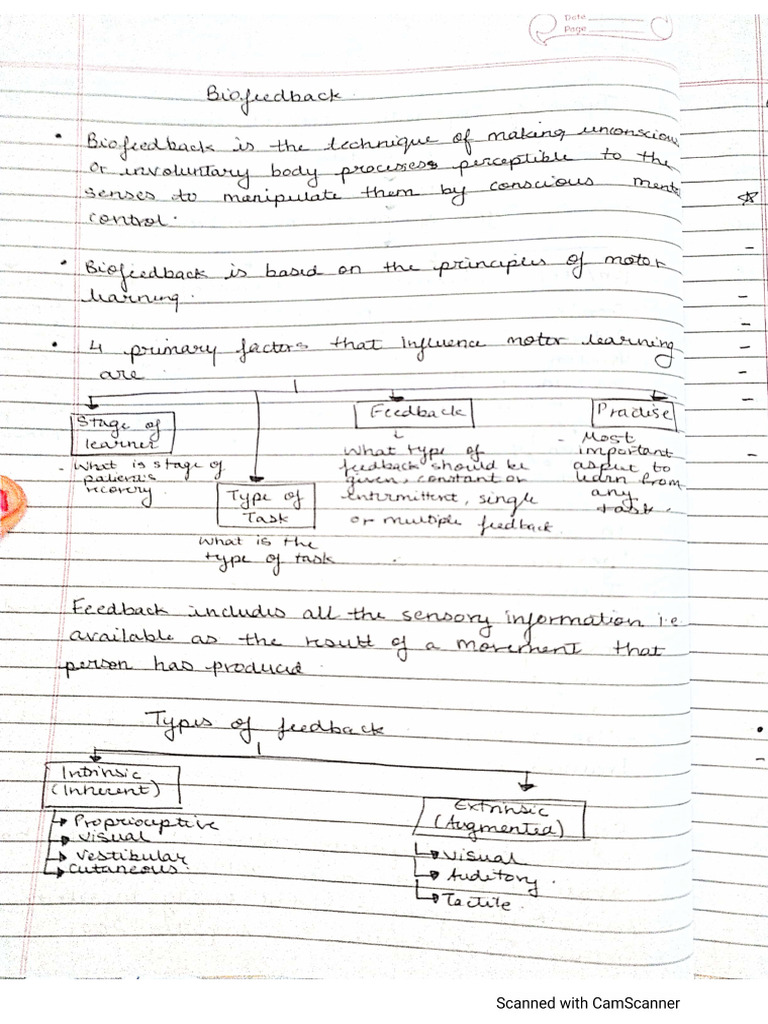 Date
Page
Biofeedback
• Biofeedback is the technique of making unconsciou
or involuntary body processes perceptible to the
senses to manipulate them by conscious ment
control.
• Biofeedback is based on the principles of motor
learning.
• 4 primary factors that influence motor learning
are
Stage of
learner
- What is stage of
patient's
recovery.
Type of
Task
What is the
type of task
Feedback
What type of
feedback should be
given, constant or
intermittent, single
or multiple feedback.
Practise
- Most
important
aspect to
learn from
any
task.
Feedback includes all the sensory information i.e
available as the result of a movement that
person has produced.
Types of feedback
Intrinsic
(Inherent)
Proprioceptive
visual
vestibular
cutaneous.
Extrinsic
(Augmented)
visual
Auditory.
Tactile.
Scanned with CamScanner